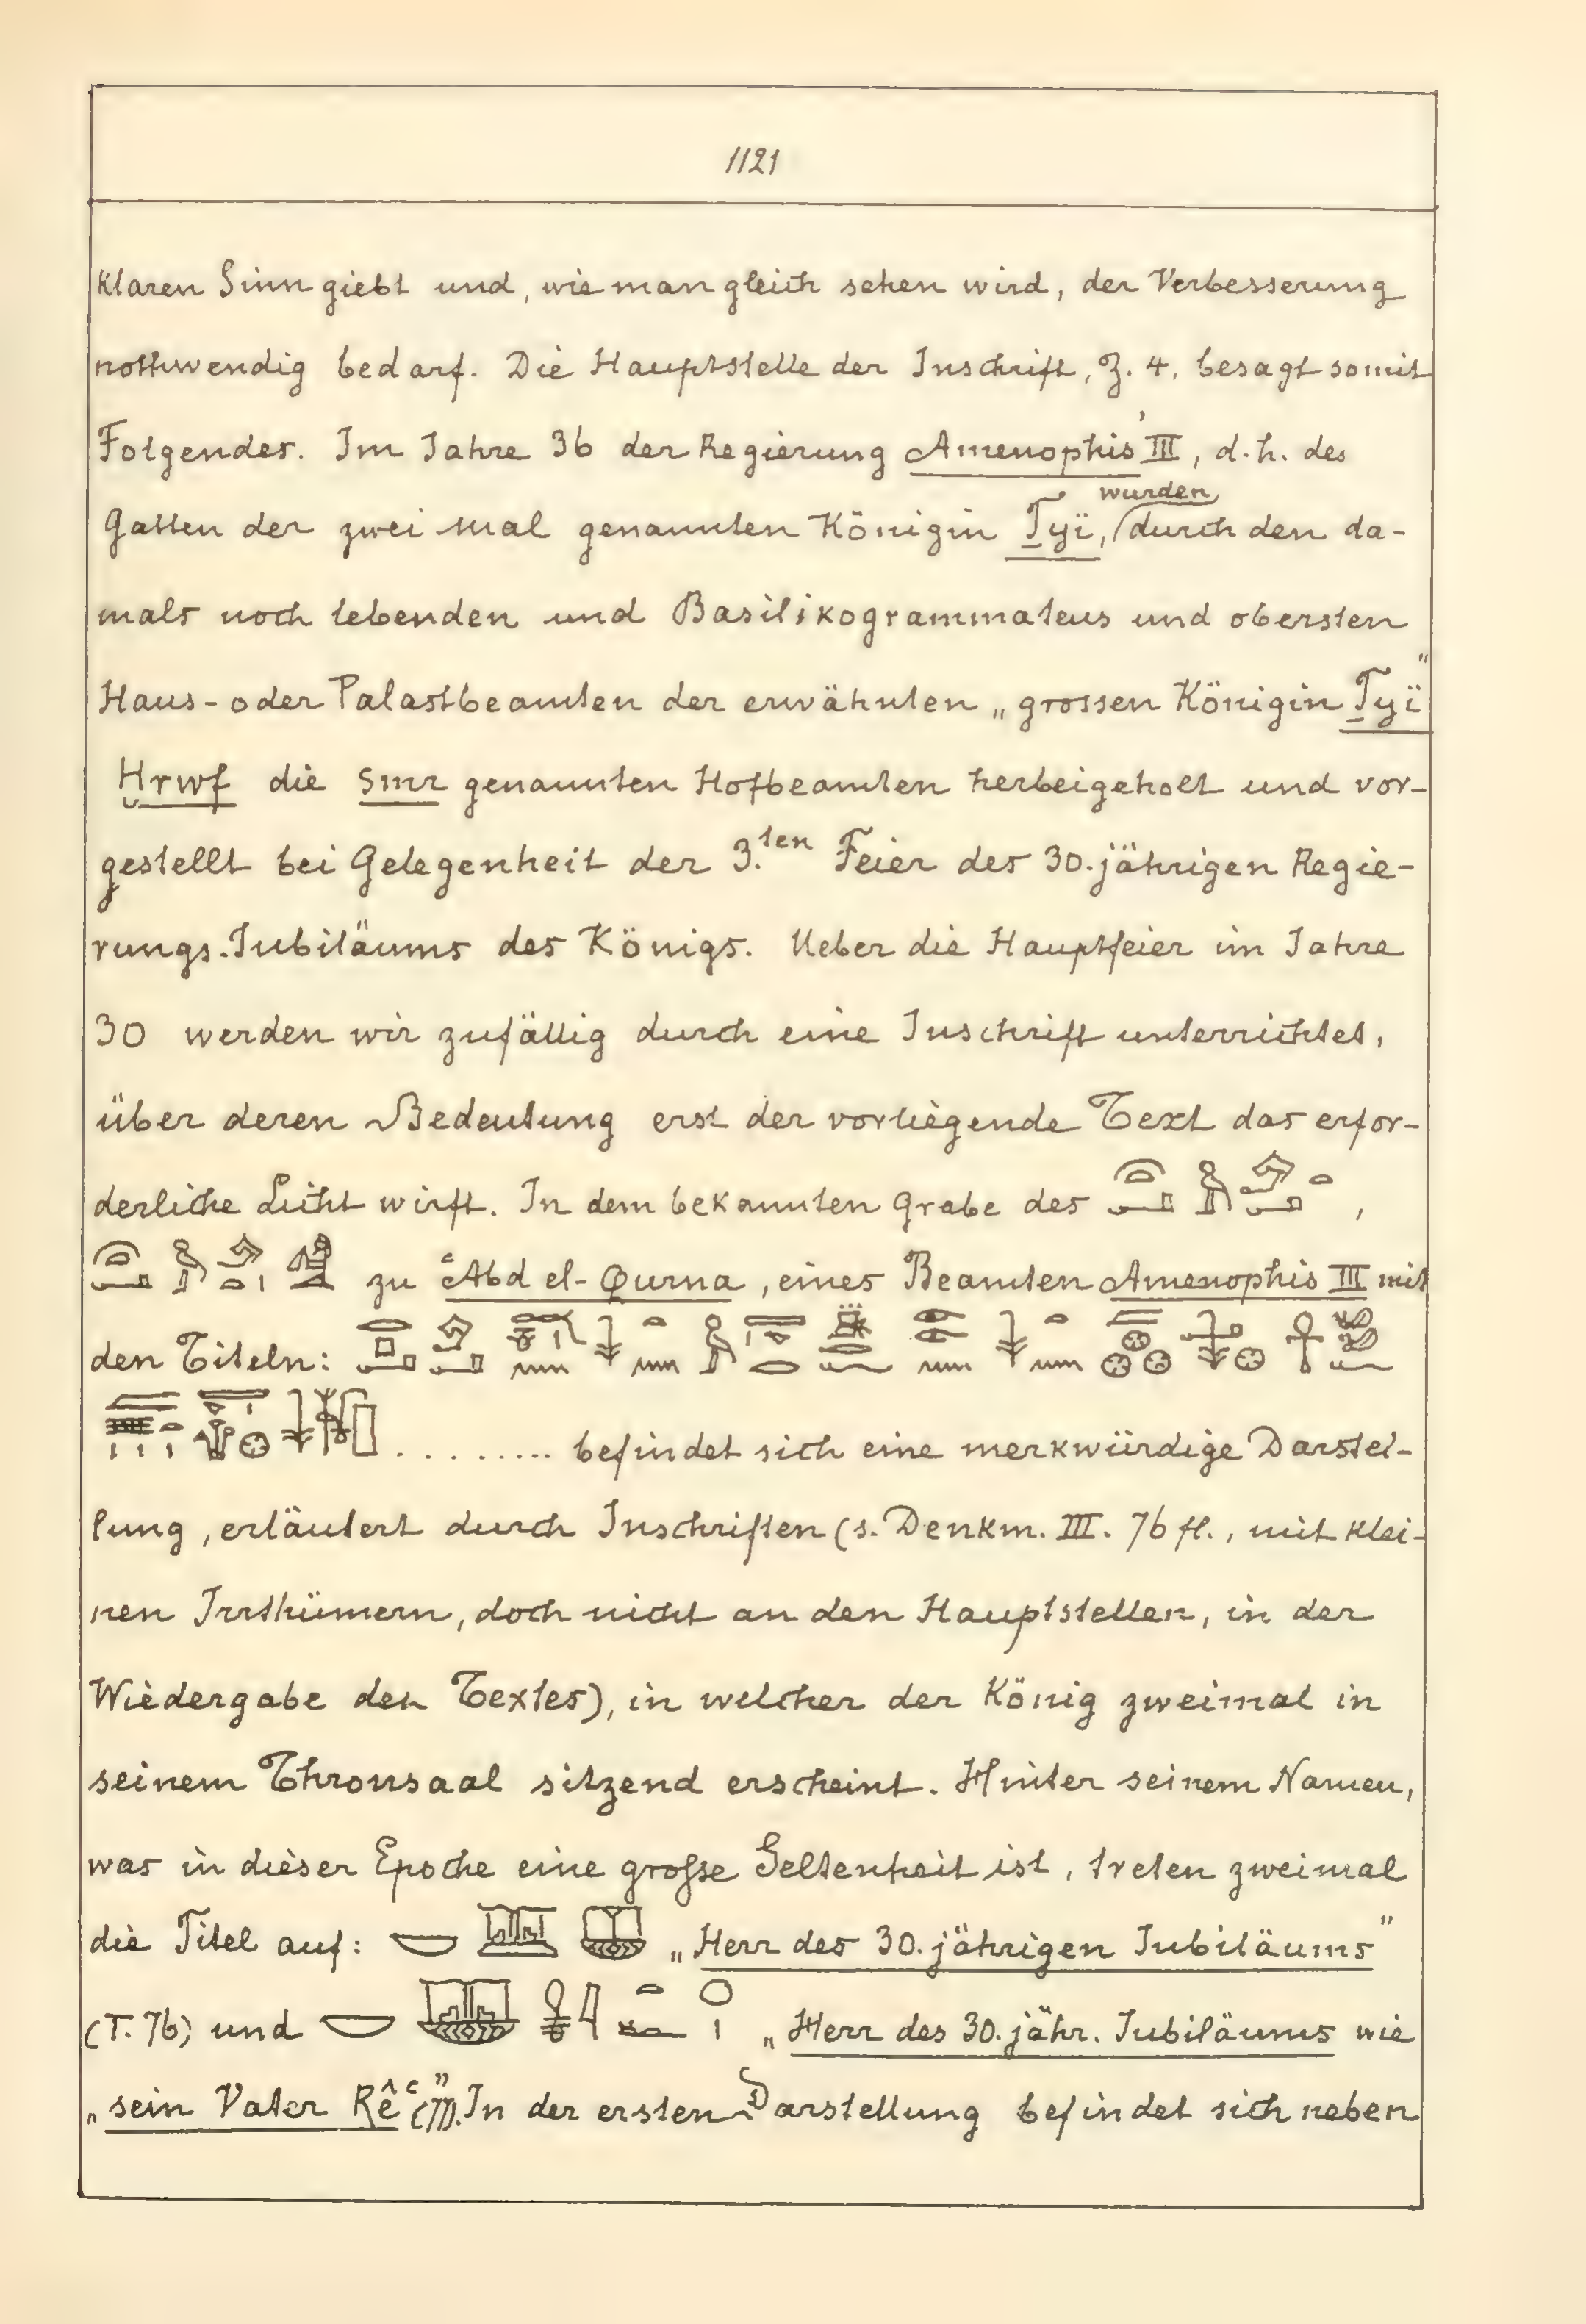 1121
klaren Sinn giebt und, wie man gleich sehen wird, der Verbesserung
nothwendig bedarf. Die Hauptstelle der Inschrift, Z. 4, besagt somit
Folgendes. Im Jahre 36 der Regierung Amenophis' III, d. h. des
Gatten der zwei Mal genannten Königin Tyï, wurden durch den da-
mals noch lebenden und Basilikogrammateus und obersten
Haus- oder Palastbeamten der erwähnten „grossen Königin Tyï"
Ḫrwf die smr genannten Hofbeamten herbeigeholt und vor-
gestellt bei Gelegenheit der 3.ten Feier des 30.jährigen Regie-
rungs.Jubiläums des Königs. Ueber die Hauptfeier im Jahre
30 werden wir zufällig durch eine Inschrift unterrichtet,
über deren Bedeutung erst der vorliegende Text das erfor-
derliche Licht wirft. In dem bekannten Grabe des ,
zu ʿAbd el-Qurna, eines Beamten Amenophis III mit
den Titeln:
......... befindet sich eine merkwürdige Darstel-
lung, erläutert durch Inschriften (s. Denkm. III. 76 fl., mit klei-
nen Irrthümern, doch nicht an den Hauptstellen, in der
Wiedergabe den Textes), in welcher der König zweimal in
seinem Thronsaal sitzend erscheint. Hinter seinem Namen,
was in dieser Epoche eine große Seltenheit ist, treten zweimal
die Titel auf: „Herr des 30.jährigen Jubiläums"
(T. 76) und „Herr des 30.jähr. Jubiläums wie
„sein Vater Rêʿ". In der ersten Darstellung befindet sich neben